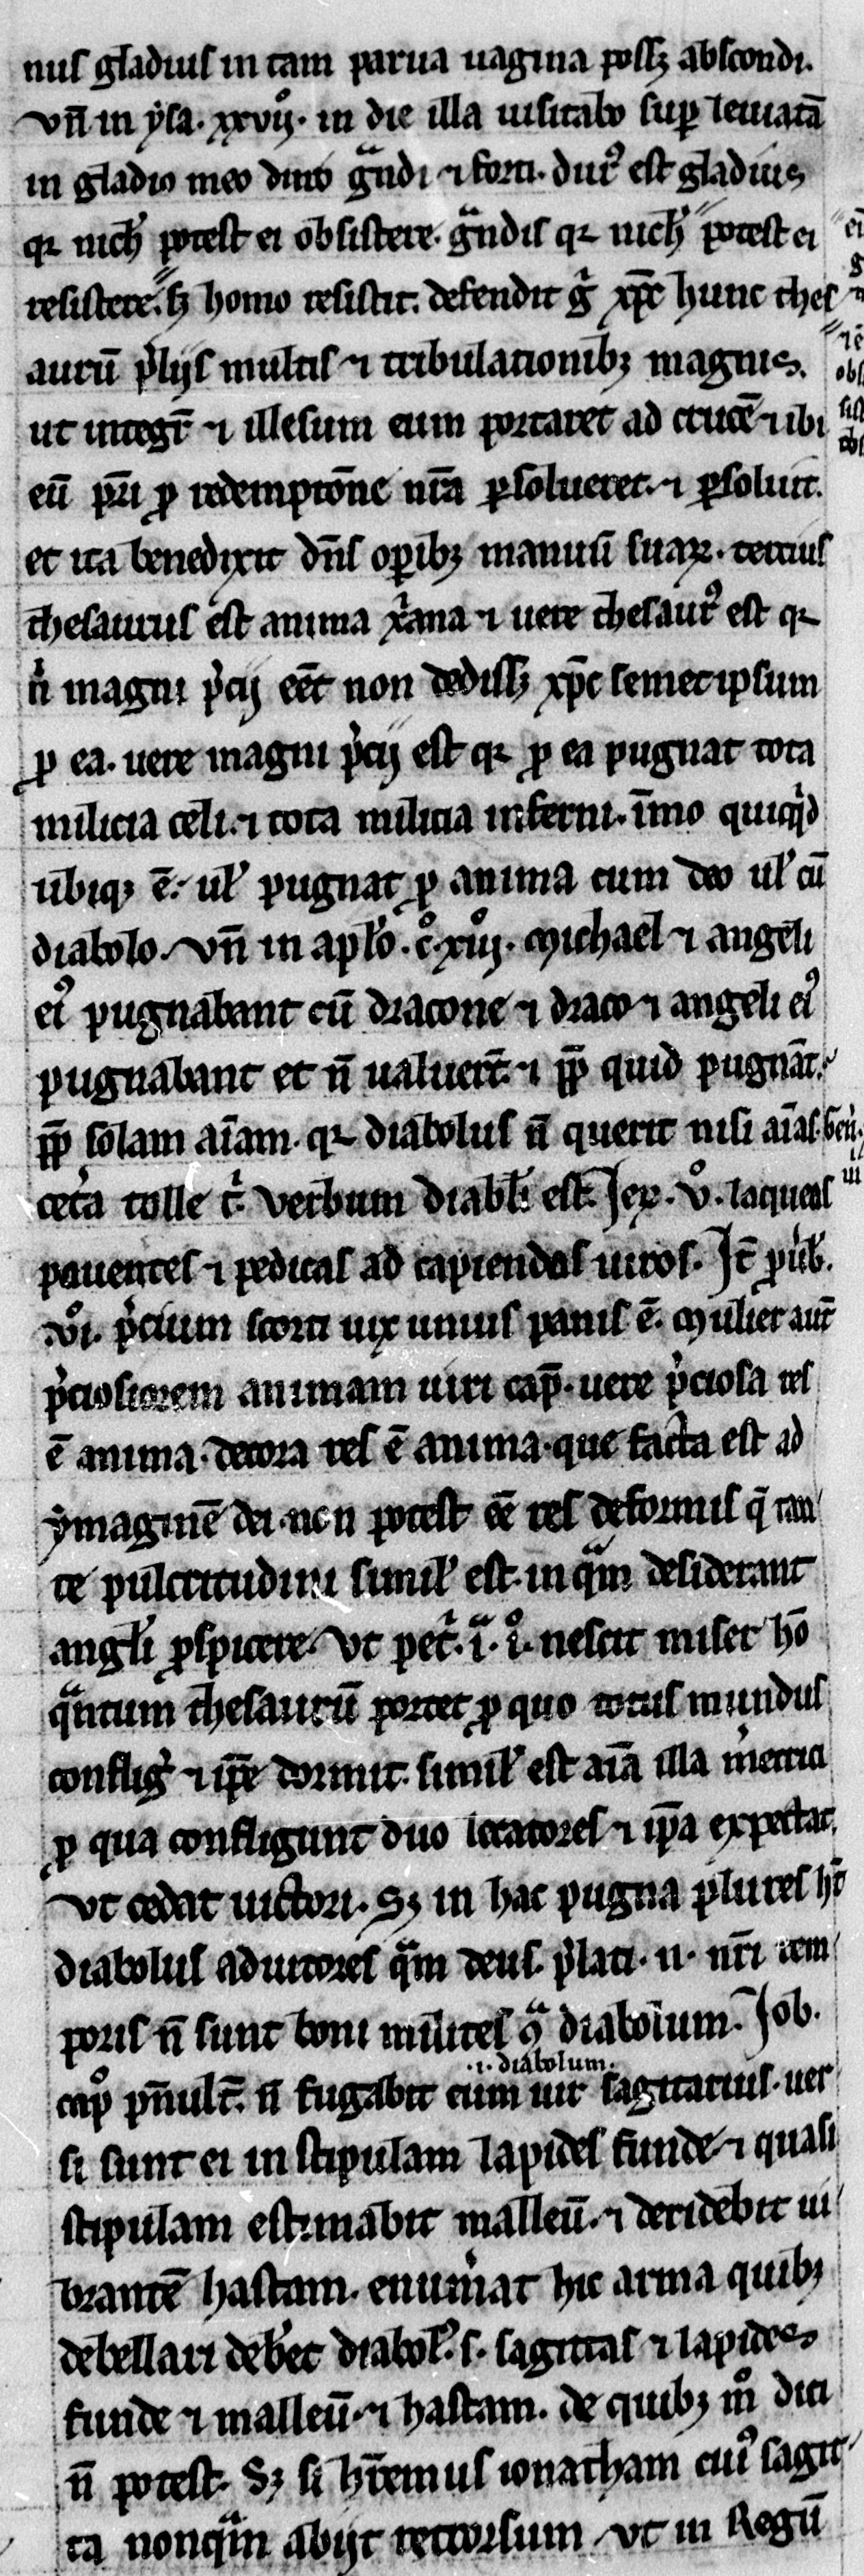 nus gladius in tam parua uagina poss; abscondi.
vn̄ in ysa. xxvij. in die illa uisitabo sup leuiatā
in gladio meo duro gͣndi ⁊ forti. durꝰ est gladius
qꝛ nich̄ potest ei obsistere. gͣndis qꝛ nich̄ potest ei
resistere. s; homo resistit. defendit g̊ xp̄c hunc thes
aurū p̄lijs multis ⁊ tribulationib; magnis.
ut integͬ ⁊ illesum eum portaret ad crucē ⁊ ibi
eū pr̄i ꝓ redemptōne nr̄a ꝑsolueret. ⁊ ꝑsoluit.
et ita benedixit dn̄s oꝑib; manuū suaꝝ. tercius
thesaurus est anima xr̄ana ⁊ uere thesaurꝰ est qꝛ
nͥ magni p̄cij eēt non dediss; xp̄c semetipsum
ꝓ ea. uere magni p̄cij est qꝛ ꝓ ea pugnat tota
milicia celi. ⁊ tota milicia inferni. īmo quicqͥd
ubiq; ē. uł pugnat ꝓ anima cum deo uł cū
diabolo. vn̄ in apło. c̊. xiij. Michael ⁊ angeli
eiꝰ pugnabant cū dracone ⁊ draco ⁊ angeli eiꝰ
pugnabant et n̄ ualuert̄. ⁊ ꝓp̄ quid pugnāt.
ꝓp̄ solam aīam. qꝛ diabolus n̄ querit nisi aīas. Gen̄.
cet̄a tolle tͥ. verbum diabłi est. Jeꝝ. v̊. laqueas
pauentes ⁊ pedicas ad capiendos uiros. Jt̄ pͬub.
.vi. p̄cium scorti uix unius panis ē. Mulier aut̄
p̄ciosiorem animam uiri cap̄. uere p̄ciosa res
ē anima. decora res ē anima. que facta est ad
ymaginē dei. non potest eē res deformis q̄ tan
te pulcritudini simił est. in qͣm desiderant
angłi ꝓspicere. vt petͥ. iͣ. i̊. nescit miser hō
qͣntum thesaurū portet ꝓ quo totus mundus
confligͥ ⁊ ip̄e dormit. simił est aīa illa mer̄trici
ꝓ qua confligunt duo leccatores ⁊ ip̄a expectat.
vt cedat uictori. S; in hac pugna plures h̄t
diabolus adiutores qͣm deus. p̄lati. n. nr̄i tem
poris n̄ sunt boni milites 9ͣ diabolum. Job.
cap̊ pn̄ult̄. n̄ fugabit eum uir sagittarius. uer
.i. diabolum.
si sunt ei in stipulam lapides funde. ⁊ quasi
stipulam estimabit malleū. ⁊ deridebit ui
brantē hastam. enum̄at hic arma quib;
debellari deb̄et diabolꝰ. s. sagittas ⁊ lapides
funde ⁊ malleū. ⁊ hastam. de quib; m̊ dici
n̄ potest. S; si h̄remus ionatham cuiꝰ sagit
ta nonqͣm abijt retrorsum. vt in Regū